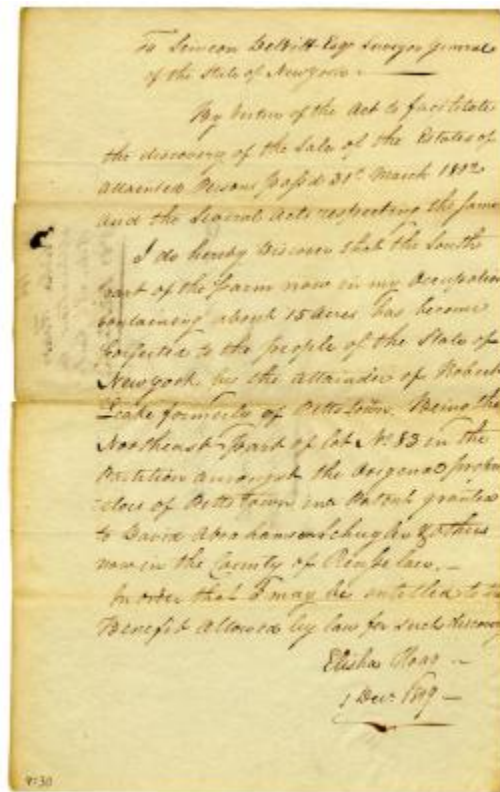 To Simeon DeWitt Esqr Surveyor General
of the State of Newyork
By Virtue of the Act to facilitate
the discovery of the Sale of the Estates of
Attainted Persons pass'd 31st March 1802
and the Several Acts respecting the same
I do hereby discover that the South
part of the farm now in my Occupation
containing about 15 Acres has become
forfeited to the people of the State of
Newyork by the attainder of Robert
Leake formerly of Pitts town. Being the
Northeast part of lot No 83 in the
Partition amongst the Original propri
etors of Pitts town in a Patent granted
to David Abrahamse Schuyler & others
now in the County of Renselaer. -
In order that I may be entitled to the
Benefit Allowed by law for such discovery
Elisha
1 Decr